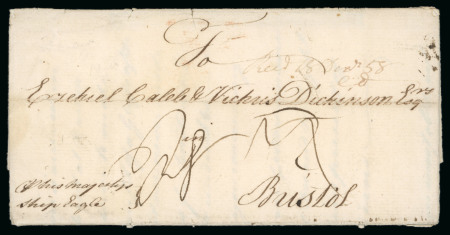 To
Recd 18 Janry 58
Ezekiel Caleb & Vickris Dickinson Esqrs
Bristol
his majestys
ship Eagle